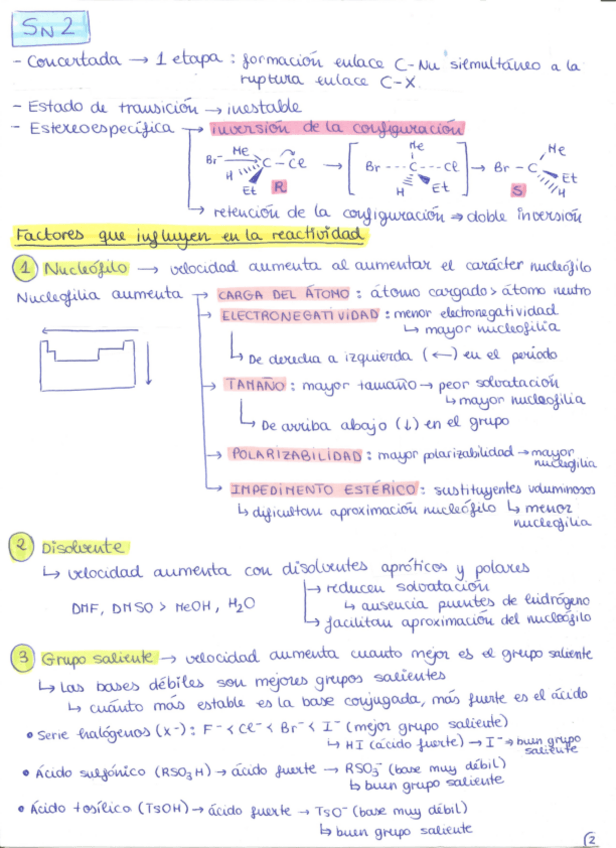 SN2
- Concertada → 1 etapa : formación enlace C-Nu simultáneo a la
ruptura enlace C-X.
- Estado de transición → inestable
- Estereoespecífica → inversión de la configuración
Br⁻ Me C - Cl H Et R → [ Br --- C --- Cl Me H Et ] → Br - C Me Et H S
→ retención de la configuración ⇒ doble inversión
Factores que influyen en la reactividad
1 Nucleófilo → velocidad aumenta al aumentar el carácter nucleófilo
Nucleofilia aumenta → CARGA DEL ÁTOMO : átomo cargado > átomo neutro
→ ELECTRONEGATIVIDAD : menor electronegatividad
↳ mayor nucleofilia
↳ De derecha a izquierda (←) en el período
→ TAMAÑO : mayor tamaño → peor solvatación
↳ mayor nucleofilia
↳ De arriba abajo (↓) en el grupo
→ POLARIZABILIDAD : mayor polarizabilidad → mayor
nucleofilia
→ IMPEDIMENTO ESTÉRICO : sustituyentes voluminosos
↳ dificultan aproximación nucleófilo ↳ menor
nucleofilia
2 Disolvente
↳ velocidad aumenta con disolventes apróticos y polares
→ reducen solvatación
DMF, DMSO > MeOH, H₂O
↳ ausencia puentes de hidrógeno
→ facilitan aproximación del nucleófilo
3 Grupo saliente → velocidad aumenta cuanto mejor es el grupo saliente
↳ Las bases débiles son mejores grupos salientes
↳ cuánto más estable es la base conjugada, más fuerte es el ácido
• Serie halógenos (X⁻) : F⁻ < Cl⁻ < Br⁻ < I⁻ (mejor grupo saliente)
↳ HI (ácido fuerte) → I⁻ → buen grupo
saliente
• Ácido sulfónico (RSO₃H) → ácido fuerte → RSO₃⁻ (base muy débil)
↳ buen grupo saliente
• Ácido tosílico (TsOH) → ácido fuerte → TsO⁻ (base muy débil)
↳ buen grupo saliente
2